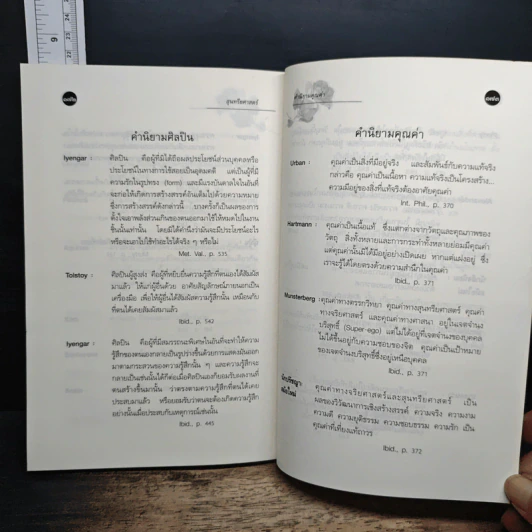 ๑๗๒
สุนทรียศาสตร์
คำนิยามศิลปิน
Iyengar : ศิลปิน คือผู้ที่มิได้ถือผลประโยชน์ส่วนบุคคลหรือ
ประโยชน์ในทางการใช้สอยเป็นอุดมคติ แต่เป็นผู้ที่มี
ความรักในรูปทรง (form) และมีแรงบันดาลใจในอันที่
จะก่อให้เกิดการสร้างสรรค์อันเต็มไปด้วยความหวัง
ซึ่งการสร้างสรรค์ดังกล่าวนี้ บางครั้งก็เป็นผลของการ
ตั้งใจเอาพลังส่วนเกินของตนออกมาใช้ให้หมดไปในงาน
ชิ้นนั้นเท่านั้น โดยมิได้คำนึงว่ามันจะมีประโยชน์อะไร
หรือจะเอาไปใช้ทำอะไรได้จริง ๆ หรือไม่
Met. Val., p. 535
Tolstoy : ศิลปินผู้สูงส่ง คือผู้ที่หยิบยื่นความรู้สึกที่ตนเองได้สัมผัส
มาแล้ว ให้แก่ผู้อื่นด้วย อาศัยสัญลักษณ์ภายนอกเป็น
เครื่องมือ เพื่อให้ผู้อื่นได้สัมผัสความรู้สึกนั้น เหมือนกับ
ที่ตนได้เคยสัมผัสมาแล้ว
Ibid., p. 542
Iyengar : ศิลปิน คือผู้ที่มีสมรรถนะพิเศษในอันที่จะทำให้ความ
รู้สึกของตนเองกลายเป็นรูปร่างขึ้นด้วยการแสดงมันออก
มาตามกระสวนของความรู้สึกนั้น ๆ และความรู้สึกจะ
กลายเป็นเช่นนั้นได้ก็ต่อเมื่อศิลปินเองก็ยอมรับผลงานที่
ตนสร้างขึ้นมานั้น ว่าตรงตามความรู้สึกที่ตนได้เคย
ประสบมาแล้ว หรือยอมรับว่าตนจะต้องเกิดความรู้สึก
อย่างนั้นเมื่อประสบกับเหตุการณ์เช่นนั้น
Ibid., p. 445
คำนิยามคุณค่า
๑๗๓
คำนิยามคุณค่า
Urban : คุณค่าเป็นสิ่งที่มีอยู่จริง และสัมพันธ์กับความแท้จริง
กล่าวคือ คุณค่าเป็นเนื้อหา ความแท้จริงเป็นโครงสร้าง...
ความมีอยู่ของสิ่งที่แท้จริงต้องอาศัยคุณค่า
Int. Phil., p. 370
Hartmann : คุณค่าเป็นเนื้อแท้ ซึ่งแตกต่างจากวัตถุและคุณภาพของ
วัตถุ สิ่งทั้งหลายและการกระทำทั้งหลายย่อมมีคุณค่า
แต่คุณค่านั้นมิได้มีอยู่อย่างเปิดเผย หากแต่แฝงอยู่ ซึ่ง
เราจะรู้ได้โดยตรงด้วยความสำนึกในคุณค่า
Ibid., p. 371
Munsterberg : คุณค่าทางตรรกวิทยา คุณค่าทางสุนทรียศาสตร์ คุณค่า
ทางจริยศาสตร์ และคุณค่าทางศาสนา อยู่ในเจตจำนง
บริสุทธิ์ (Super-ego) แต่ไม่ได้อยู่ที่เจตจำนงของบุคคล
ไม่ได้ขึ้นอยู่กับความชอบของจิต คุณค่าเป็นเป้าหมาย
ของเจตจำนงบริสุทธิ์ซึ่งอยู่เหนือบุคคล
Ibid., p. 371
นักปรัชญา
สมัยใหม่ : คุณค่าทางจริยศาสตร์และสุนทรียศาสตร์ เป็น
ผลของวิวัฒนาการเชิงสร้างสรรค์ ความจริง ความงาม
ความดี ความยุติธรรม ความชอบธรรม ความรัก เป็น
คุณค่าที่เที่ยงแท้ถาวร
Ibid., p. 372